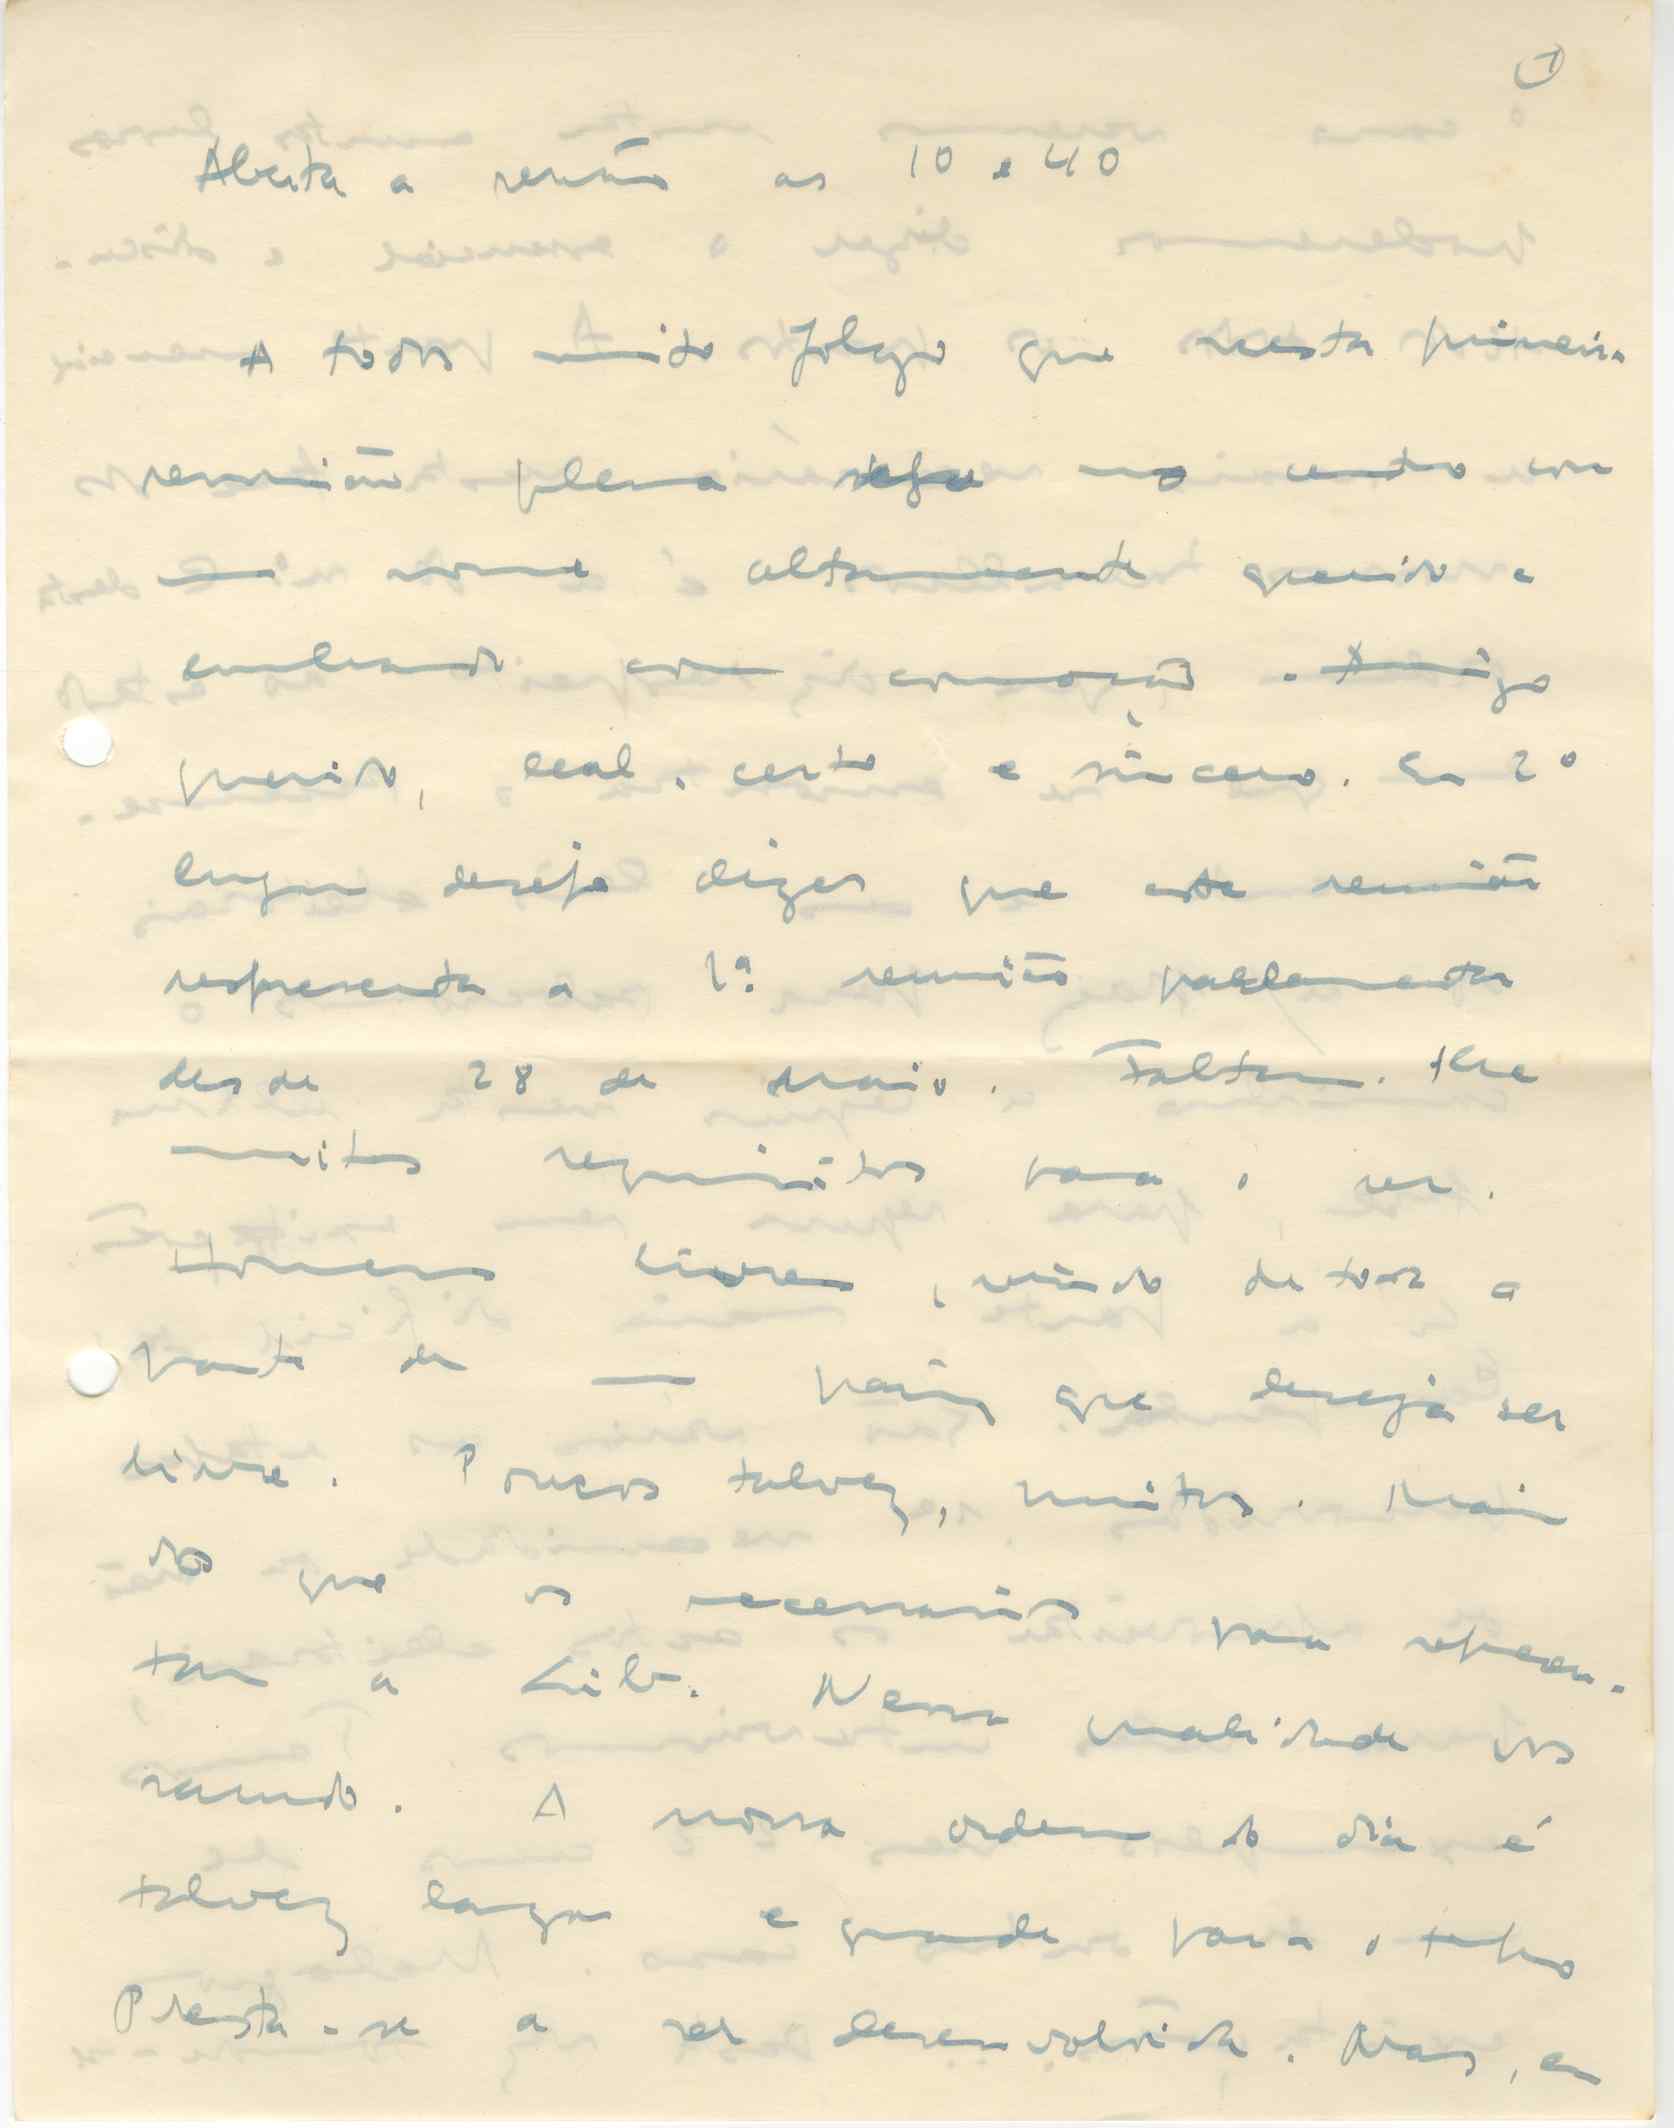 1
Aberta a sessão as 10 e 40
A todos muito folgo que nesta primeira
reunião plena no centro com
um nome altamente querido e
lembrado com comoção. Amigo
querido, leal, certo e sincero. Em 2º
lugar desejo dizer que esta reunião
representa a 1ª reunião parlamentar
desde 28 de Maio. Faltam-lhe
muitos requisitos para o ser.
Homens Livres, vindo de toda a
parte de um país que deseja ser
livre. Poucos talvez, muitos. Mais
dos que os necessarios para represen-
tar a Lib. Nessa qualidade vos
saudo. A nossa ordem do dia é
talvez larga e grande para o tempo
Presta-se a ser desenvolvida. Mas, em